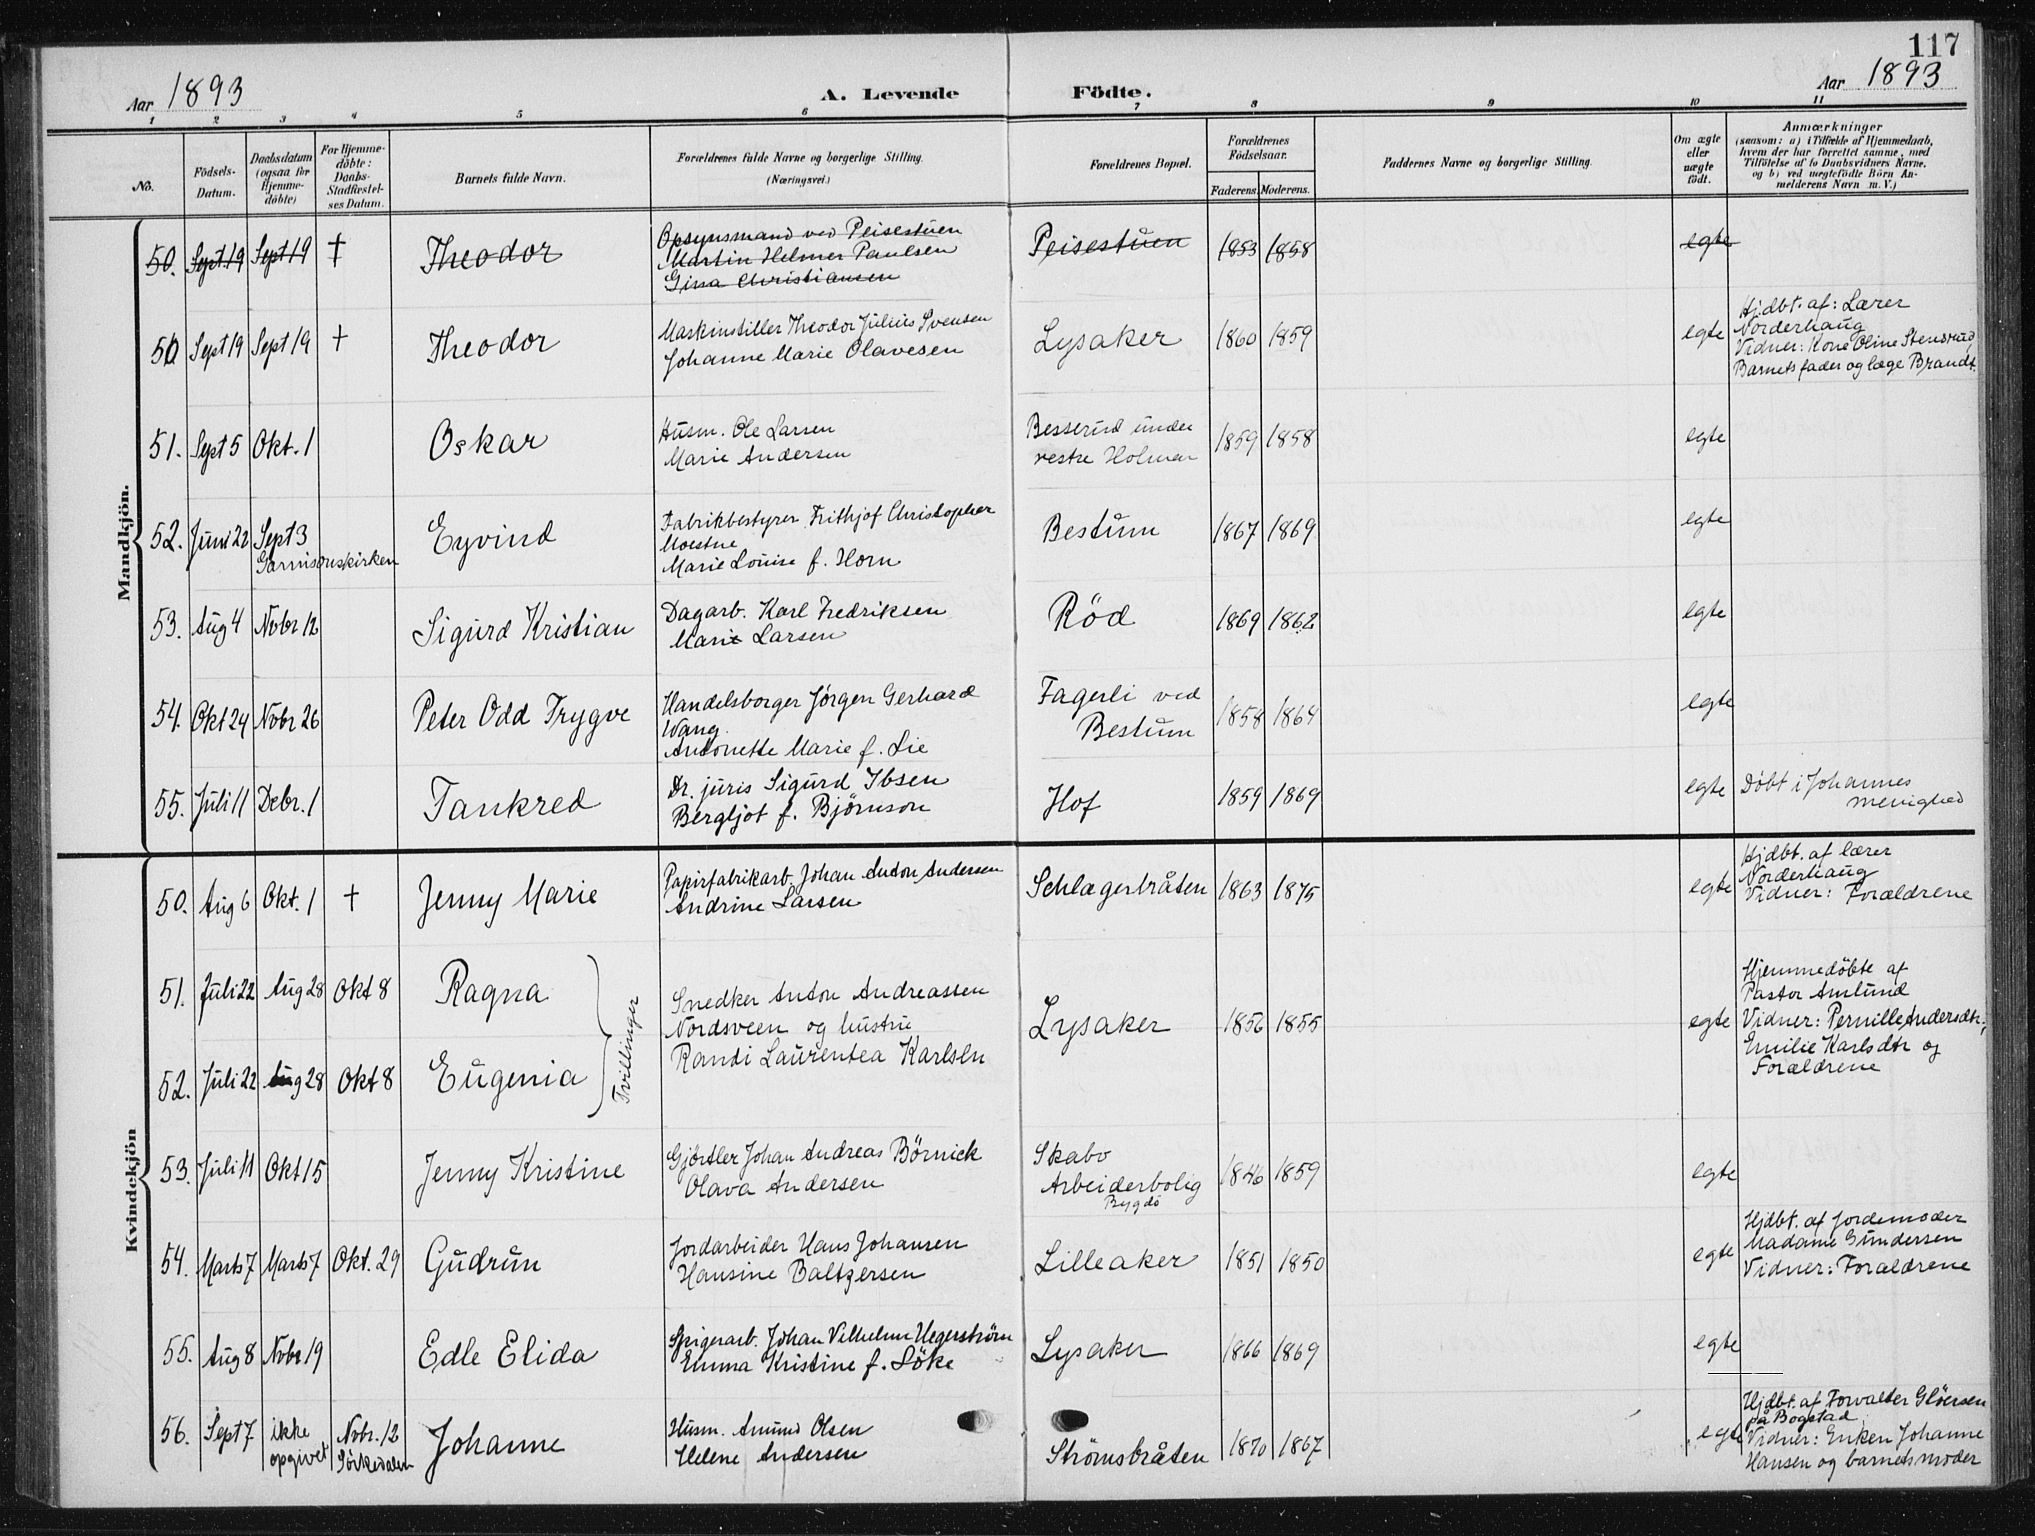 117
Aar 1893
A. Levende Födte.
Aar 1893
1 2 3 4 5 6 7 8 9 10 11
No.
Födsels-
Datum.
Daabsdatum
(ogsaa for
Hjemme-
döbte)
For Hjemme-
döbte:
Daabs-
Stadfæstel-
ses Datum.
Barnets fulde Navn.
Forældrenes fulde Navne og borgerlige Stilling.
(Næringsvei.)
Forældrenes Bopæl.
Forældrenes
Födselsaar.
Faderens. Moderens.
Faddernes Navne og borgerlige Stilling.
Om ægte
eller
uægte
födt.
Anmærkninger
(saasom: a) i Tilfælde af Hjemmedaab,
hvem der har forrettet samme, med
Tilföielse af to Daabsvidners Navne,
og b) ved uegtefödte Börn An-
melderens Navn m. V.)
Mandkjön.
50. Sept.19 Sept 19 † Theodor
Opsynsmand ved Peisestuen
Martin Helmer Paulsen
Gina Christiansen
Peisestuen 1853 1858 egte
50 Sept 19 Sept 19 † Theodor
Maskinstiller Theodor Julius Svensen
Johanne Marie Olavesen
Lysaker 1860 1859 egte
Hjdbt. af: Lærer
Norderhaug
Vidner: Kone Oline Stensrud,
Barnets fader og læge Brandt.
51. Sept 5 Okt. 1 Oskar
Husm. Ole Larsen
Marie Andersen
Besserud under
vestre Holmen
1859 1858 egte
52. Juni 22 Sept 3
Garnisonskirken
Eyvind
Fabrikbestyrer Frithjof Christopher
Moestue
Marie Louise f. Horn
Bestum 1867 1869 egte
53. Aug 4 Nobr 12 Sigurd Kristian
Dagarb. Karl Fredriksen
Marie Larsen
Röd 1869 1862 egte
54. Okt 24 Nobr 26 Peter Odd Trygve
Handelsborger Jørgen Gerhard
Wang
Antonette Marie f. Lie
Fagerli ved
Bestum
1858 1864 egte
55. Juli 11 Debr. 1 Tankred
Dr. juris Sigurd Ibsen
Bergljot f. Bjørnson
Hof 1859 1869 egte
Døbt i Johannes
menighed
Kvindekjön
50. Aug 6 Okt. 1 † Jenny Marie
Papirfabrikarb. Johan Anton Andersen
Andrine Larsen
Schlagerbråten 1863 1875 egte
Hjdbt. af lærer
Norderhaug
Vidner: Forældrene
51. Juli 22 Aug 28 Okt 8 Ragna
52. Juli 22 Aug 28 Okt 8 Eugenia
Tvillinger
Snedker Anton Andreassen
Nordsveen og hustru
Randi Laurentea Karlsen
Lysaker 1856 1855 egte
Hjemmedøbte af
Pastor Amlund
Vidner: Pernille Andersdtr.,
Emilie Karlsdtr og
Forældrene
53. Juli 11 Okt 15 Jenny Kristine
Gjørtler Johan Andreas Børnick
Olava Andersen
Skabo
Arbeiderbolig
Bygdö
1846 1859 egte
54. Marts 7 Marts 7 Okt. 29 Gudrun
Jordarbeider Hans Johansen
Hansine Baltzersen
Lilleaker 1851 1850 egte
Hjdbt. af Jordemoder
Madame Gundersen
Vidner: Forældrene
55. Aug 8 Nobr 19 Edle Elida
Spigerarb. Johan Vilhelm Hegerstrøm
Emma Kristine f. Löke
Lysaker 1866 1869 egte
56. Sept 7 ikke
opgivet
Nobr. 12
Sørkedalen
Johanne
Husm. Amund Olsen
Helene Andersen
Strømsbråten 1870 1867 egte
Hjdbt. af Forvalter Gløersen
på Bogstad
Vidner: Enken Johanne
Hansen og barnets moder